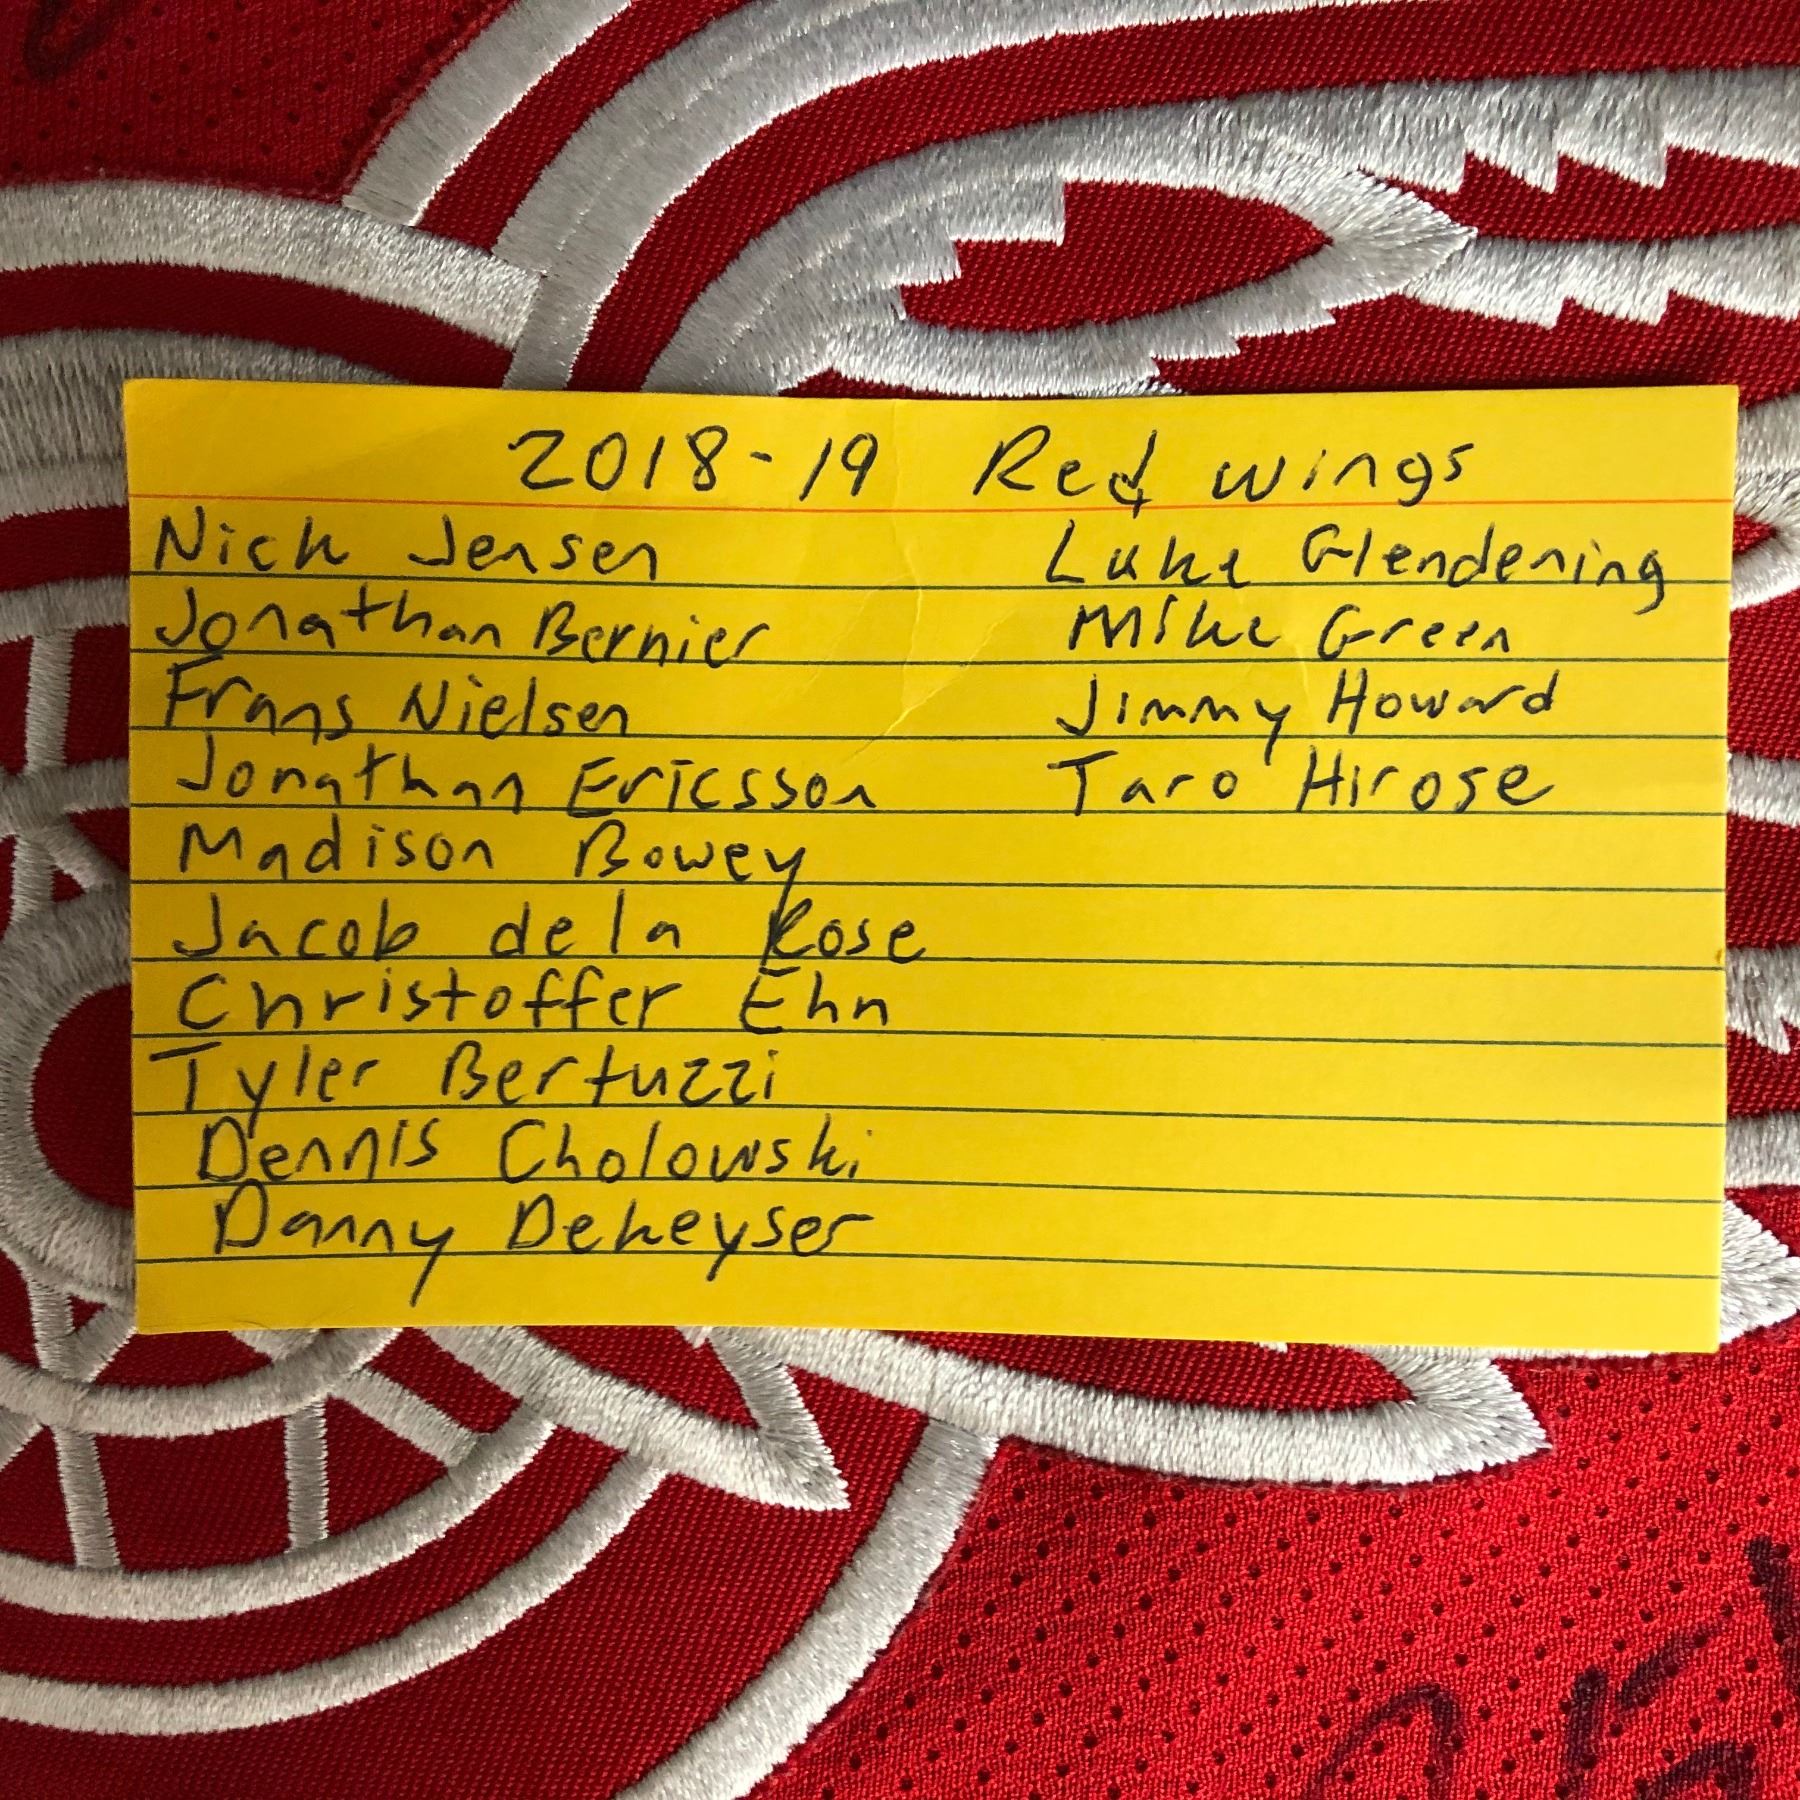 2018-19 Red wings
Nick Jensen
Jonathan Bernier
Frans Nielsen
Jonathan Ericsson
Madison Bowey
Jacob de la Rose
Christoffer Ehn
Tyler Bertuzzi
Dennis Cholowski
Danny Dekeyser
Luke Glendening
Mike Green
Jimmy Howard
Taro Hirose